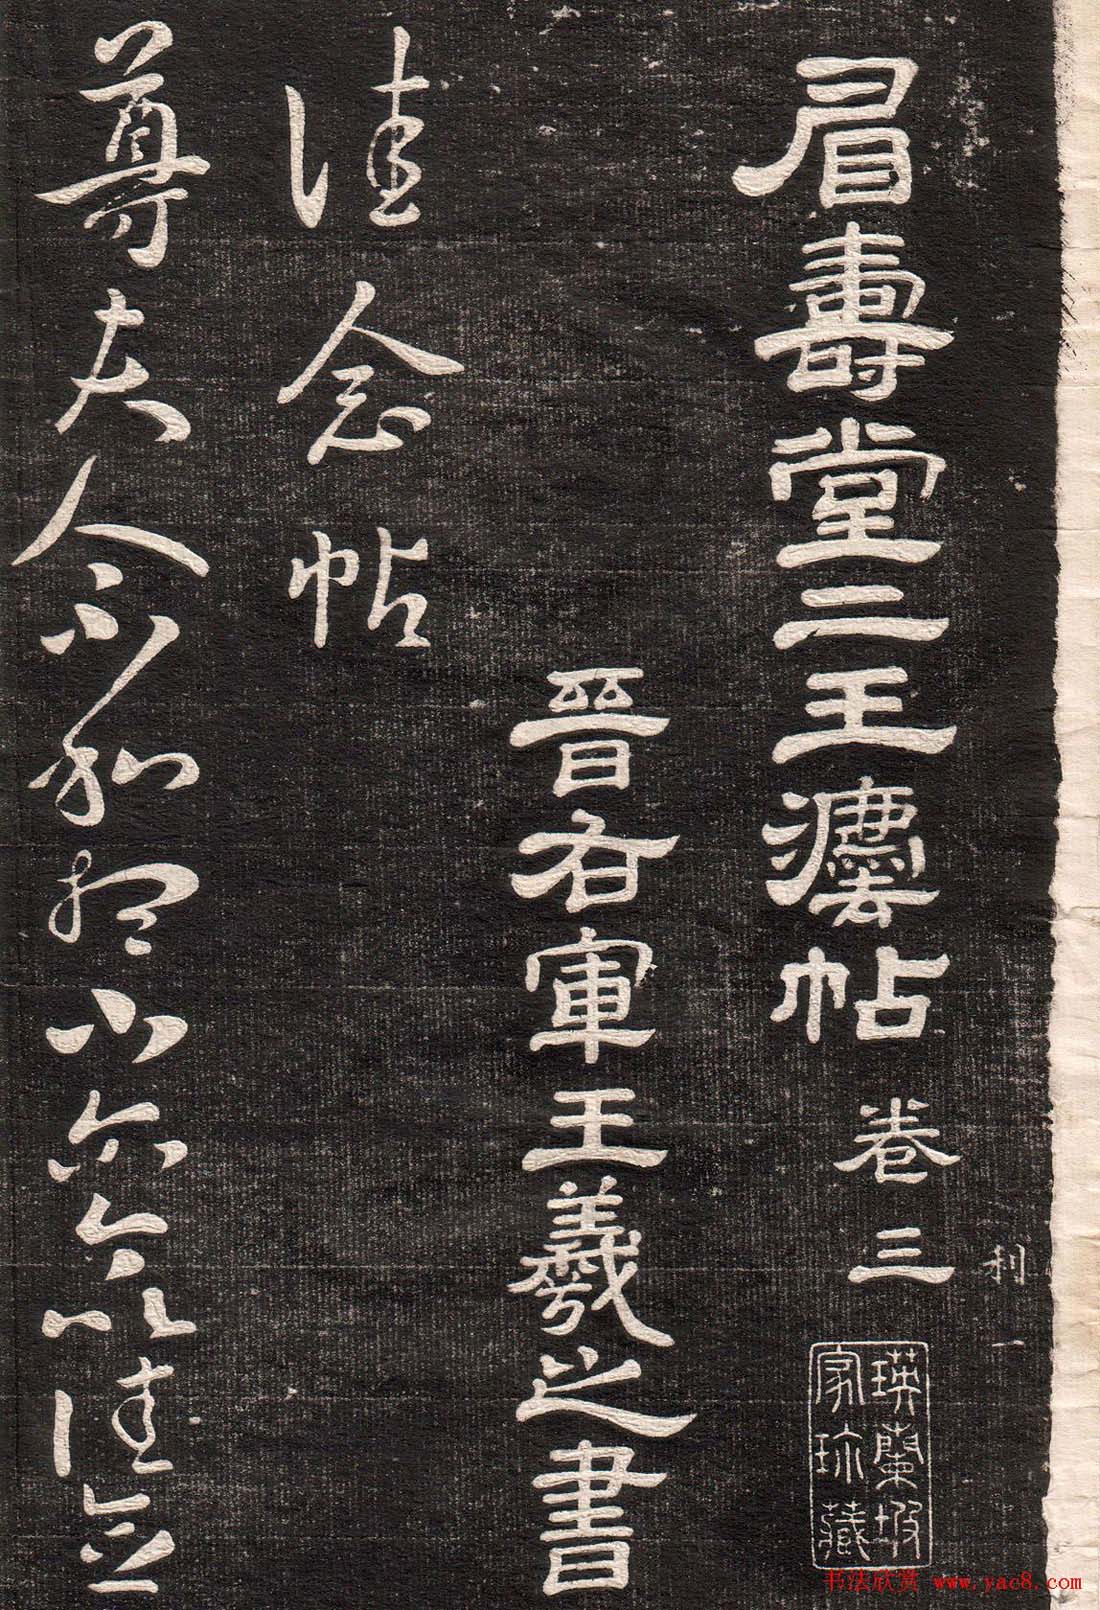 利一
眉壽堂二王灋帖 卷三
瑛蘭坡
家珍藏
晉右軍王羲之書
佳念帖
尊夫人不和想小尔今以佳念
书法欣赏 www.yac8.com